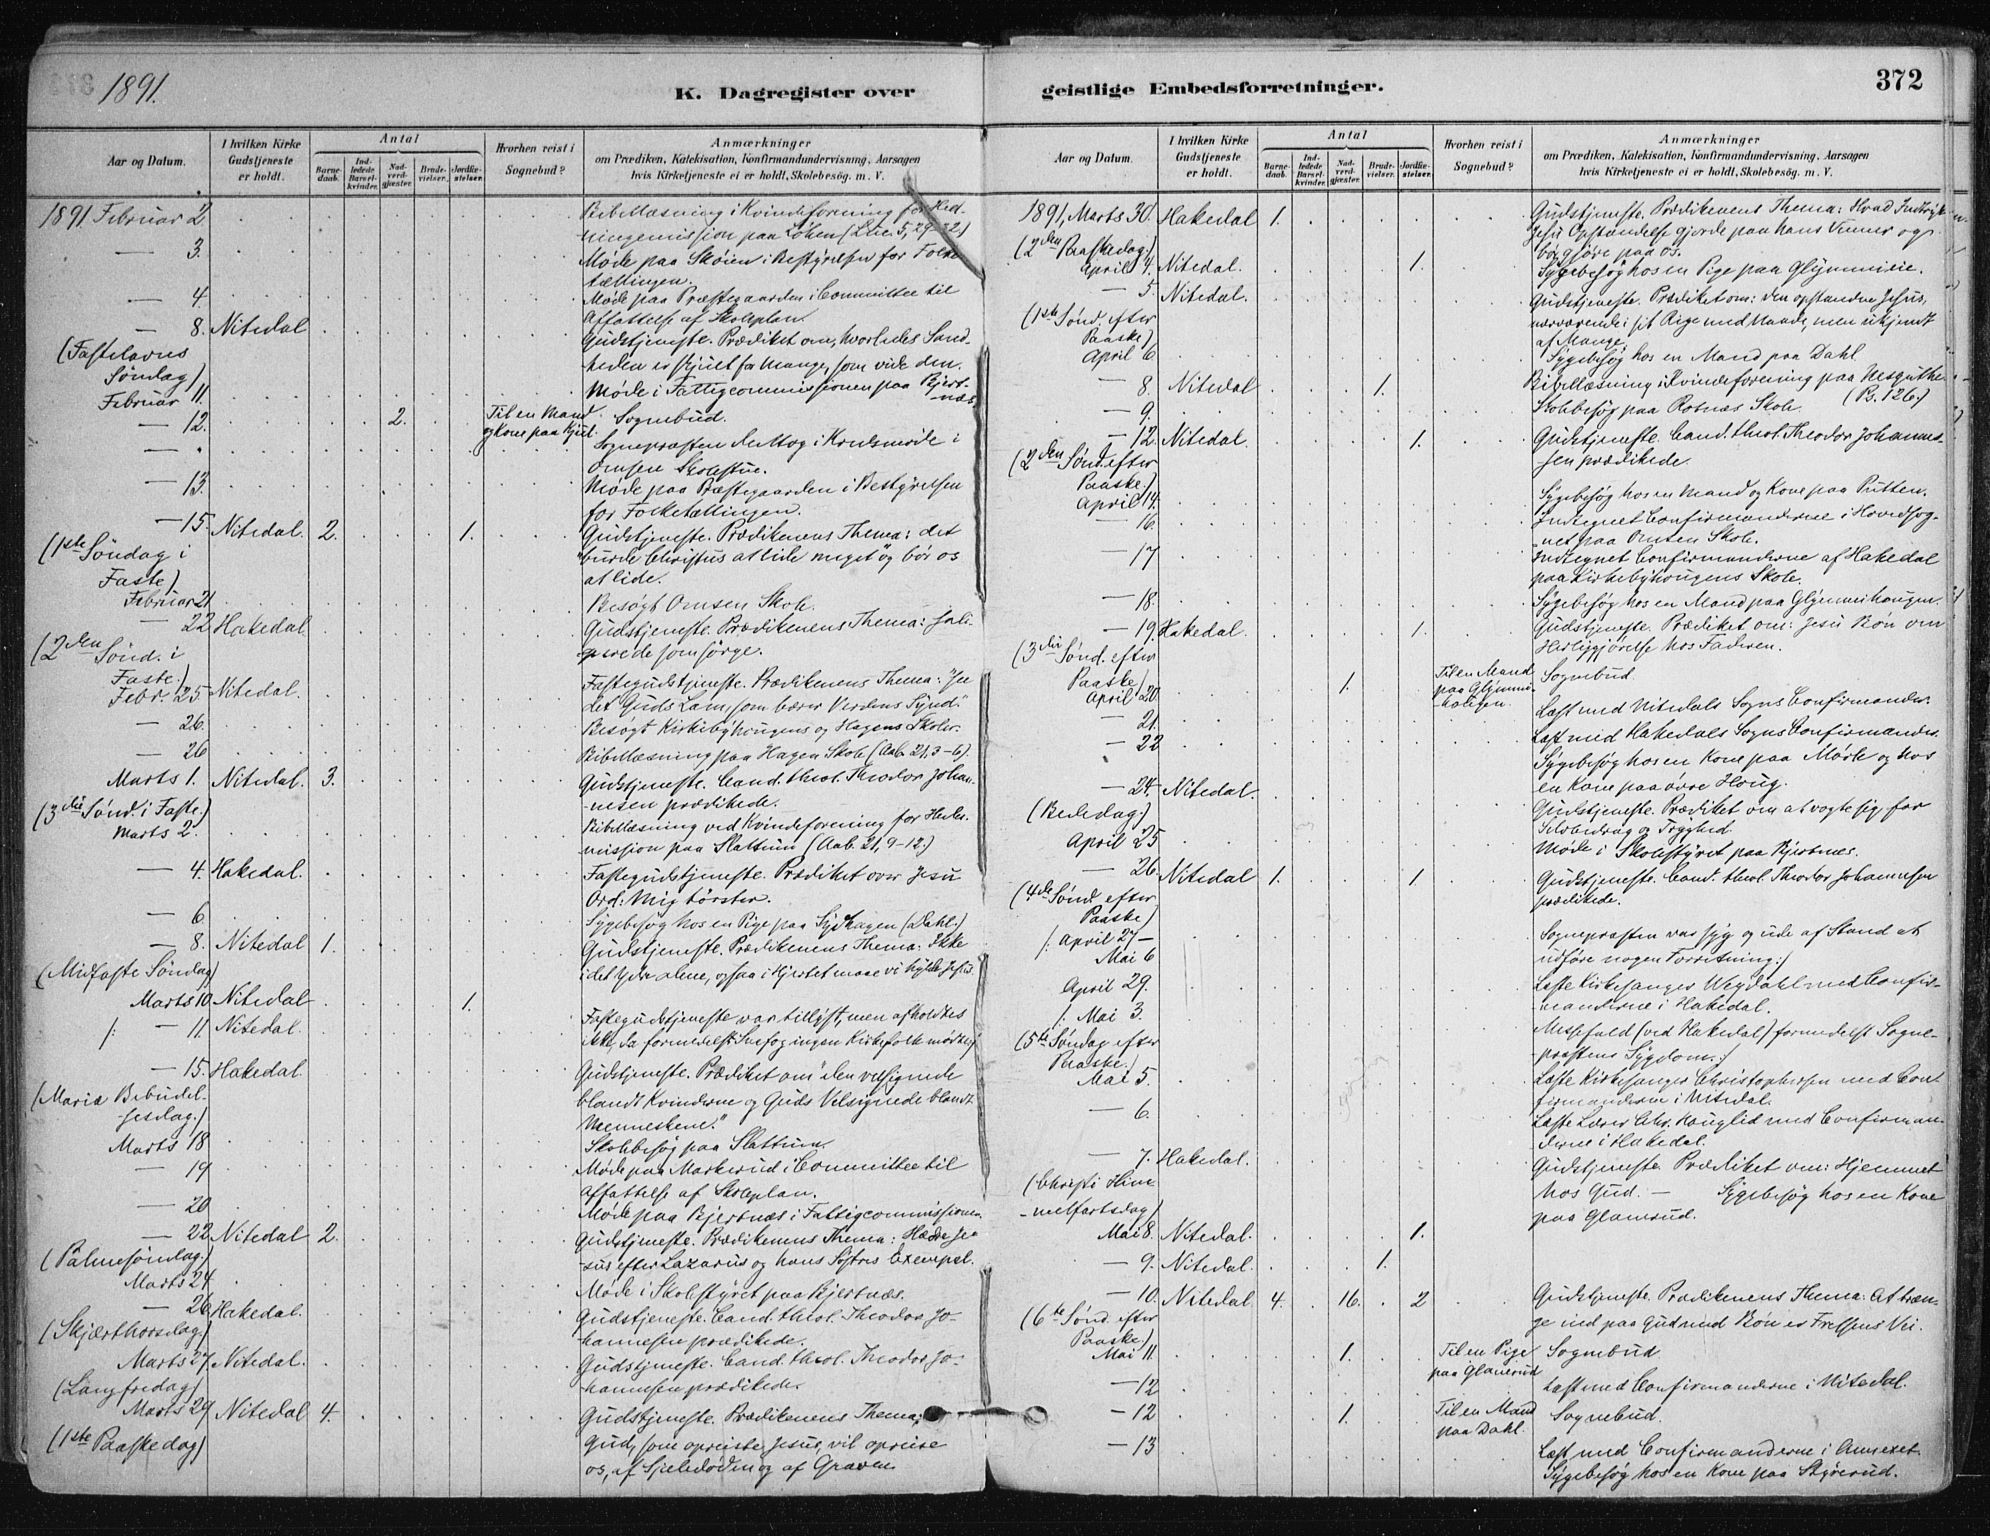 1891.
K. Dagregister over
Aar og Datum.
I hvilken Kirke
Gudstjeneste
er holdt.
Antal
Barne-
daab.
Ind-
ledede
Barsel-
kvinder.
Nad-
verd-
gjæster.
Brude-
vielser.
Jordfæ-
stelser.
Hvorhen reist i
Sognebud?
Anmærkninger
om Prædiken, Katekisation, Konfirmandundervisning, Aarsagen
hvis Kirketjeneste ei er holdt, Skolebesøg. m. V.
1891 Februar 2
Bibellæsning i Kvindeforening for Hed-
ningemission paa Løhen (Luc. 5, 29-32)
— 3.
Møde paa Skøien i Bestyrelsen for Folke
tællingen.
— 4
Møde paa Præstegaarden i Committee til
Affattelse af Skoleplan.
— 8. Nitedal
Gudstjeneste. Prædiket om, hvorledes Sand-
(Fastelavns
heden er skjult for mange, som vide den.
Søndag)
Februar 11.
Møde i Fattigcommissionen paa Bjert-
næs
— 12. 2. Til en Mand Sognebud.
og Kone paa Kjul.
— "
Sognepræsten deltog i Kredsmøde i
Ørnsen Skolestue.
— 13.
Møde paa Præstegaarden i Bestyrelsen
for Folketællingen.
— 15. Nitedal. 2. 1. Gudstjeneste. Prædikenens Thema: det
(1ste Søndag i
"burde Christus at lide meget" og bør os
Faste)
at lide.
Februar 21
Besøgt Ørnsen Skole.
— 22 Hakedal
Gudstjeneste. Prædikenens Thema: Sali-
(2den Sønd. i
ge ere de som sørge.
Faste)
Febr. 25 Nitedal.
Fastegudstjeneste. Prædikenens Thema: "Se
det Guds Lam, som bærer Verdens Synd."
— 26.
Besøgt Kirkebyhougens og Hagens Skoler.
— 26
Bibellæsning paa Hagen Skole (Aab. 21, 3-6).
Marts 1. Nitedal. 3. Gudstjeneste. Cand. theol. Theodor Johan-
(3die Sønd. i Faste.)
nesen prædikede.
Marts 2.
Bibellæsning ved Kvindeforening for Hedn.
mission paa Slattum (Aab. 21, 9-12.)
— 4. Hakedal.
Fastegudstjeneste. Prædiket over Jesu
Ord: Mig tørster.
— 6.
Sygebesøg hos en Pige paa Sydhagen (Dahl.)
— 8. Nitedal 1. Gudstjeneste. Prædikenens Thema: Ikke
(Midfaste Søndag)
i det Ydre alene, ogsaa i Hjertet maae vi hylde Jesus.
Marts 10. Nitedal 1.
/: — 11. Nitedal.
Fastegudstjeneste var tillyst, men afholdtes
ikke, da formedelst Snefog ingen Kirkefolk mødte:/
— 15. Hakedal.
Gudstjeneste. Prædiket om "den velsignede
(Mariæ Bebudel-
blandt Kvinderne og Guds Velsignede blandt
sesdag.)
Menneskene."
Marts 18
Skolebesøg paa Slattum.
— 19
Møde paa Markerud i Committee til
Affattelse af Skoleplan.
— 20
Møde paa Bjertnæs i Fattigcommissionen.
— 22 Nitedal 2. Gudstjeneste. Prædikenens Thema: Hædre Je-
(Palmesøndag.)
sus efter Lazarus og hans Søstres Exempel.
Marts 24
Møde i Skolestyret paa Bjertnæs.
— 26 Hakedal.
Gudstjeneste. Cand. theol. Theodor Jo-
(Skjærthorsdag.)
hannesen prædikede.
Marts 27. Nitedal.
Gudstjeneste. Cand. theol. Theodor Jo-
(Langfredag)
hannesen prædikede.
Marts 29 Nitedal 4. Gudstjeneste. Prædikenens Thema:
(1ste Paaskedag)
Gud, som opreiste Jesus, vil opreise
os, af Sjeledøden og af Graven.
geistlige Embedsforretninger.
372
Aar og Datum.
I hvilken Kirke
Gudstjeneste
er holdt.
Antal
Barne-
daab.
Ind-
ledede
Barsel-
kvinder.
Nad-
verd-
gjæster.
Brude-
vielser.
Jordfæ-
stelser.
Hvorhen reist i
Sognebud?
Anmærkninger
om Prædiken, Katekisation, Konfirmandundervisning, Aarsagen
hvis Kirketjeneste ei er holdt, Skolebesøg. m. V.
1891, Marts 30. Hakedal 1. Gudstjeneste. Prædikenens Thema: Hvad Indtryk
(2den Paaskedag.)
Jesu Opstandelse gjorde paa hans Venner og
bør gjøre paa os.
April 4. Nitedal. 1. Sygebesøg hos en Pige paa Glymmeie.
— 5. Nitedal.
Gudstjeneste. Prædiket om: den opstandne Jesus,
(1ste Sønd. efter
nærværende i sit Rige med Naade, men ukjendt
Paaske)
af Mange.
April 6
Sygebesøg hos en Mand paa Dahl
— 8. Nitedal 1. Bibellæsning i Kvindeforening paa
(Ps. 126.)
— 9.
Skolebesøg paa Rotnæs Skole.
— 12. Nitedal. 1. Gudstjeneste. Cand. theol. Theodor Johannes-
(2den Sønd. efter
sen prædikede.
Paaske.)
April 14.
Sygebesøg hos en Mand og Kone paa Putten.
— 16.
Indtegnet Confirmanderne i Hovedsog-
net paa Ørnsen Skole.
— 17
Indtegnet Confirmanderne af Hakedal
paa Kirkebyhougens Skole.
— 18.
Sygebesøg hos en Mand paa Glymmehougen.
— 19. Hakedal. 1. Gudstjeneste. Prædiket om: Jesu Bøn om
(3die Sønd. efter
Herliggjørelse hos Faderen.
Paaske)
April 20. 1. Til en Mand Sognebud.
paa
— 21.
Læst med Nitedals Sogns Confirmander.
— 22
Læst med Hakedals Sogns Confirmander.
Sygebesøg hos en Kone paa Mørle og hos
en Kone paa øvre Houg.
— 24. Nitedal.
Gudstjeneste. Prædiket om at vogte sig for
(Bededag.)
Selvbedrag og Tryghed.
April 25
Møde i Skolestyret paa Bjertnæs.
— 26. Nitedal 1. 1. Gudstjeneste. Cand. theol. Theodor Johannesen
(4de Sønd. efter
prædikede.
Paaske)
/: April 27 —
Sognepræsten var syg og ude af Stand at
Mai 6
udføre nogen Forretning:/
April 29.
Læste Kirkesanger Wegdahl med Confir-
manderne i Hakedal.
/: Mai 3.
Messefald (ved Hakedal) formedelst Sogne-
(5te Søndag efter
præstens Sygdom:/
Paaske.)
Mai 5.
Læste Kirkesanger Christophersen med Con-
firmanderne i Nitedal.
— 6.
Læste Lærer Chr. Hauglid med Confirman-
derne i Hakedal.
— 7. Hakedal.
Gudstjeneste. Prædiket om: Hjemmet
(Christi Him-
hos Gud. — Sygebesøg hos en Kone
melfartsdag)
paa Glamrud.
Mai 8. Nitedal. 1.
— 9. Nitedal. 1.
— 10. Nitedal 4. 16. 2 Gudstjeneste. Prædikenens Thema: At træn-
(6te Sønd. efter
ge ind paa Gud med Bøn er Frelsens Vei.
Paaske)
Mai 11. 1. Til en Pige Sognebud.
paa Glamrud
— 12
Læst med Confirmanderne i Nitedal.
— 12 1. Til en Mand Sognebud.
paa Dahl.
— 13
Læst med Confirmanderne i Annexet.
Sygebesøg hos en Kone paa Styrerud.